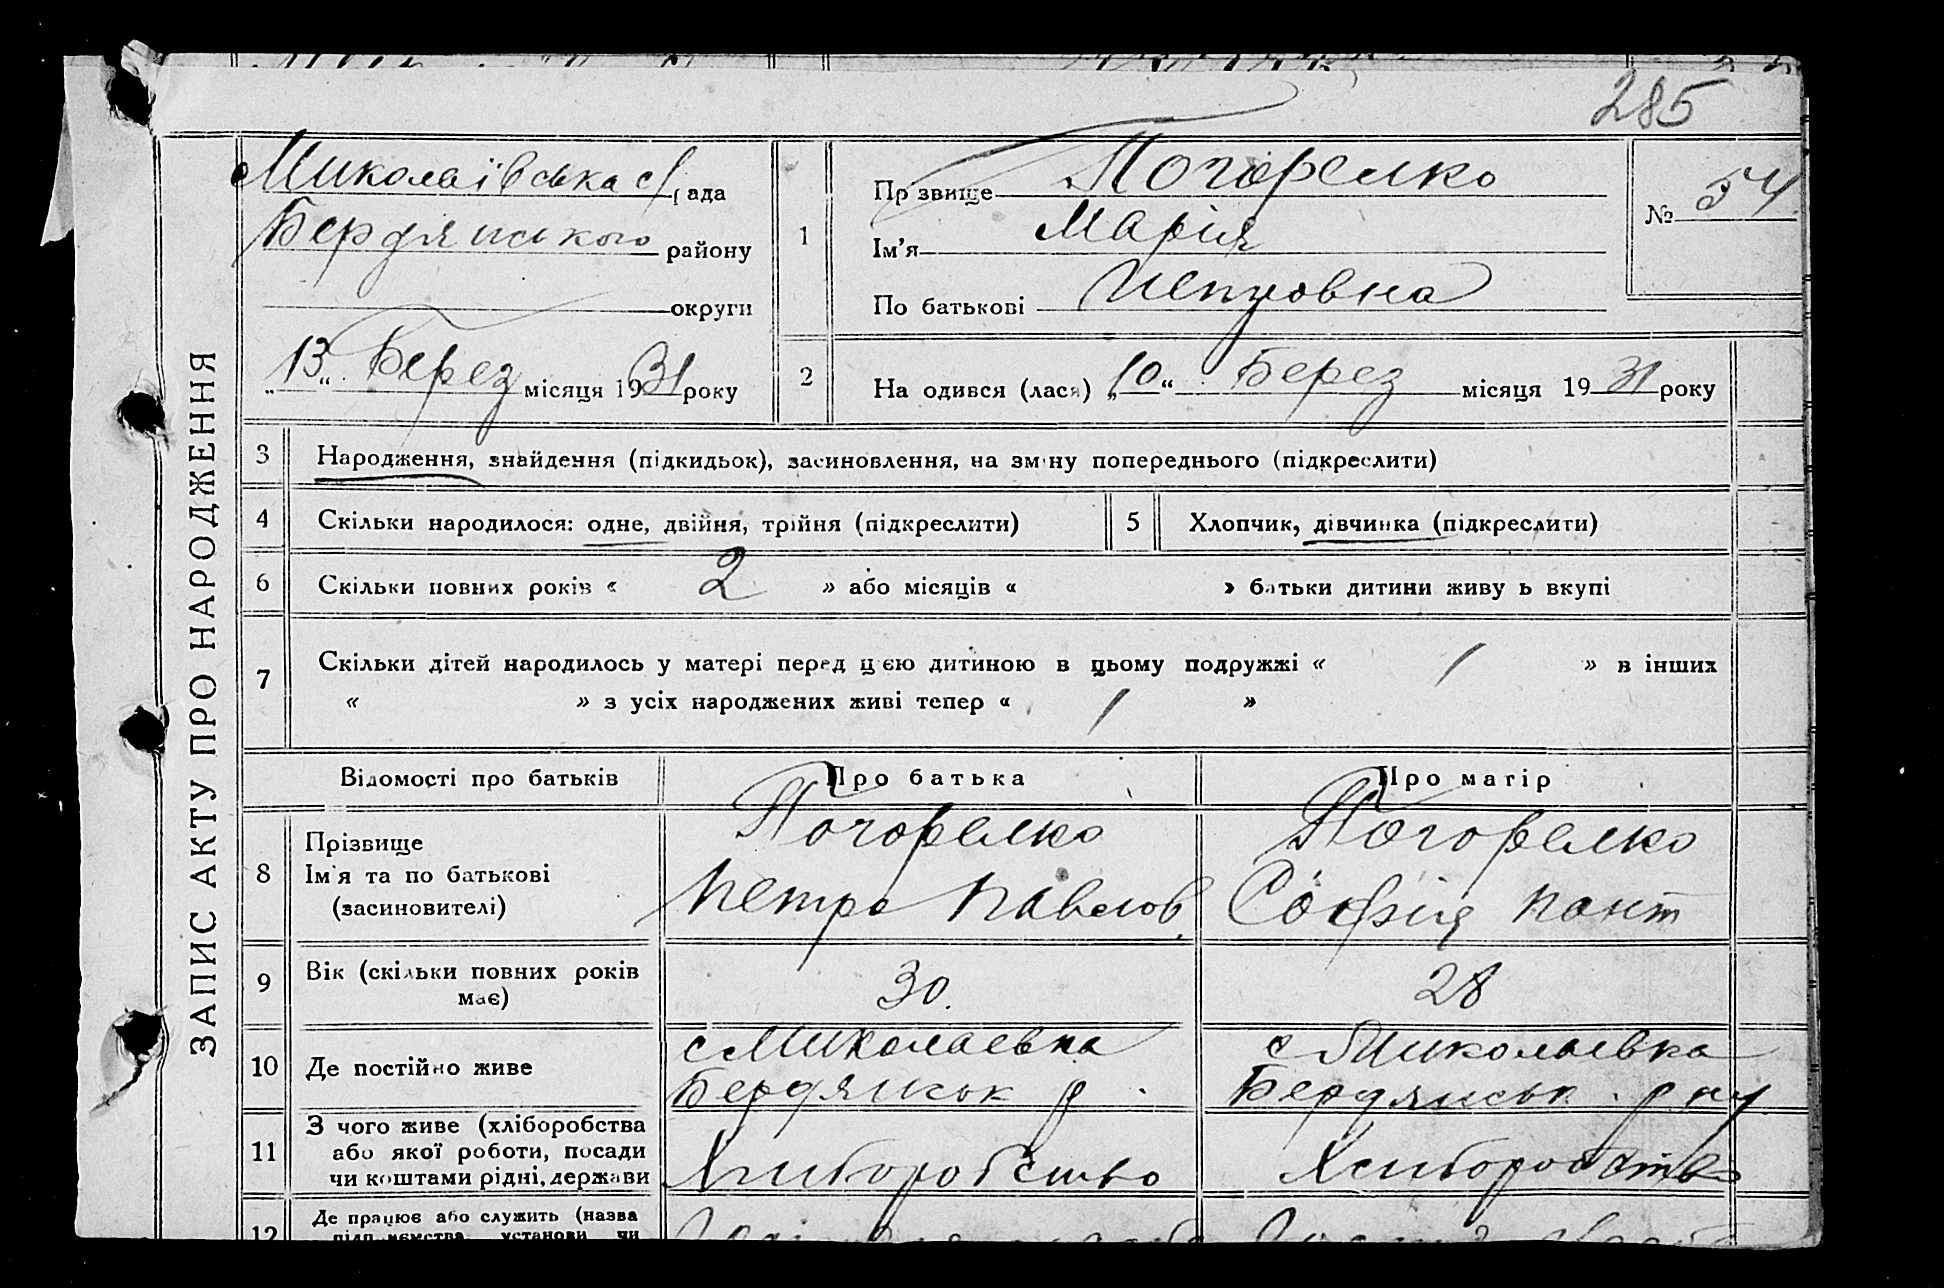 285
ЗАПИС АКТУ ПРО НАРОДЖЕННЯ
Миколаївська с/рада
Бердянського району
округи
„13“ Берез місяця 1931 року
1
Прізвище Погорелко
Ім’я Марія
По батькові Петровна
№ 54
2
На одився (лася) „10“ Берез місяця 1931 року
3 Народження, знайдення (підкидьок), засиновлення, на зміну попереднього (підкреслити)
4 Скільки народилося: одне, двійня, трійня (підкреслити)
5 Хлопчик, дівчинка (підкреслити)
6 Скільки повних років « 2 » або місяців « » батьки дитини живу ь вкупі
7 Скільки дітей народилось у матері перед цією дитиною в цьому подружжі « 1 » в інших
« » з усіх народжених живі тепер « 1 »
Відомості про батьків
Про батька
Про матір
8 Прізвище
Ім'я та по батькові
(засиновителі)
Погорелко
Петро Павлов.
Погорелко
Софія Пант
9 Вік (скільки повних років
має)
30.
28
10 Де постійно живе
с Миколаевка
Бердянськ р.
с Миколаевка
Бердянськ. р ну
11 З чого живе (хліборобства
або якої роботи, посади
чи коштами рідні, держави
Хлиборобство
Хлиборобство
12 Де працює або служить (назва
підприємства, установи чи